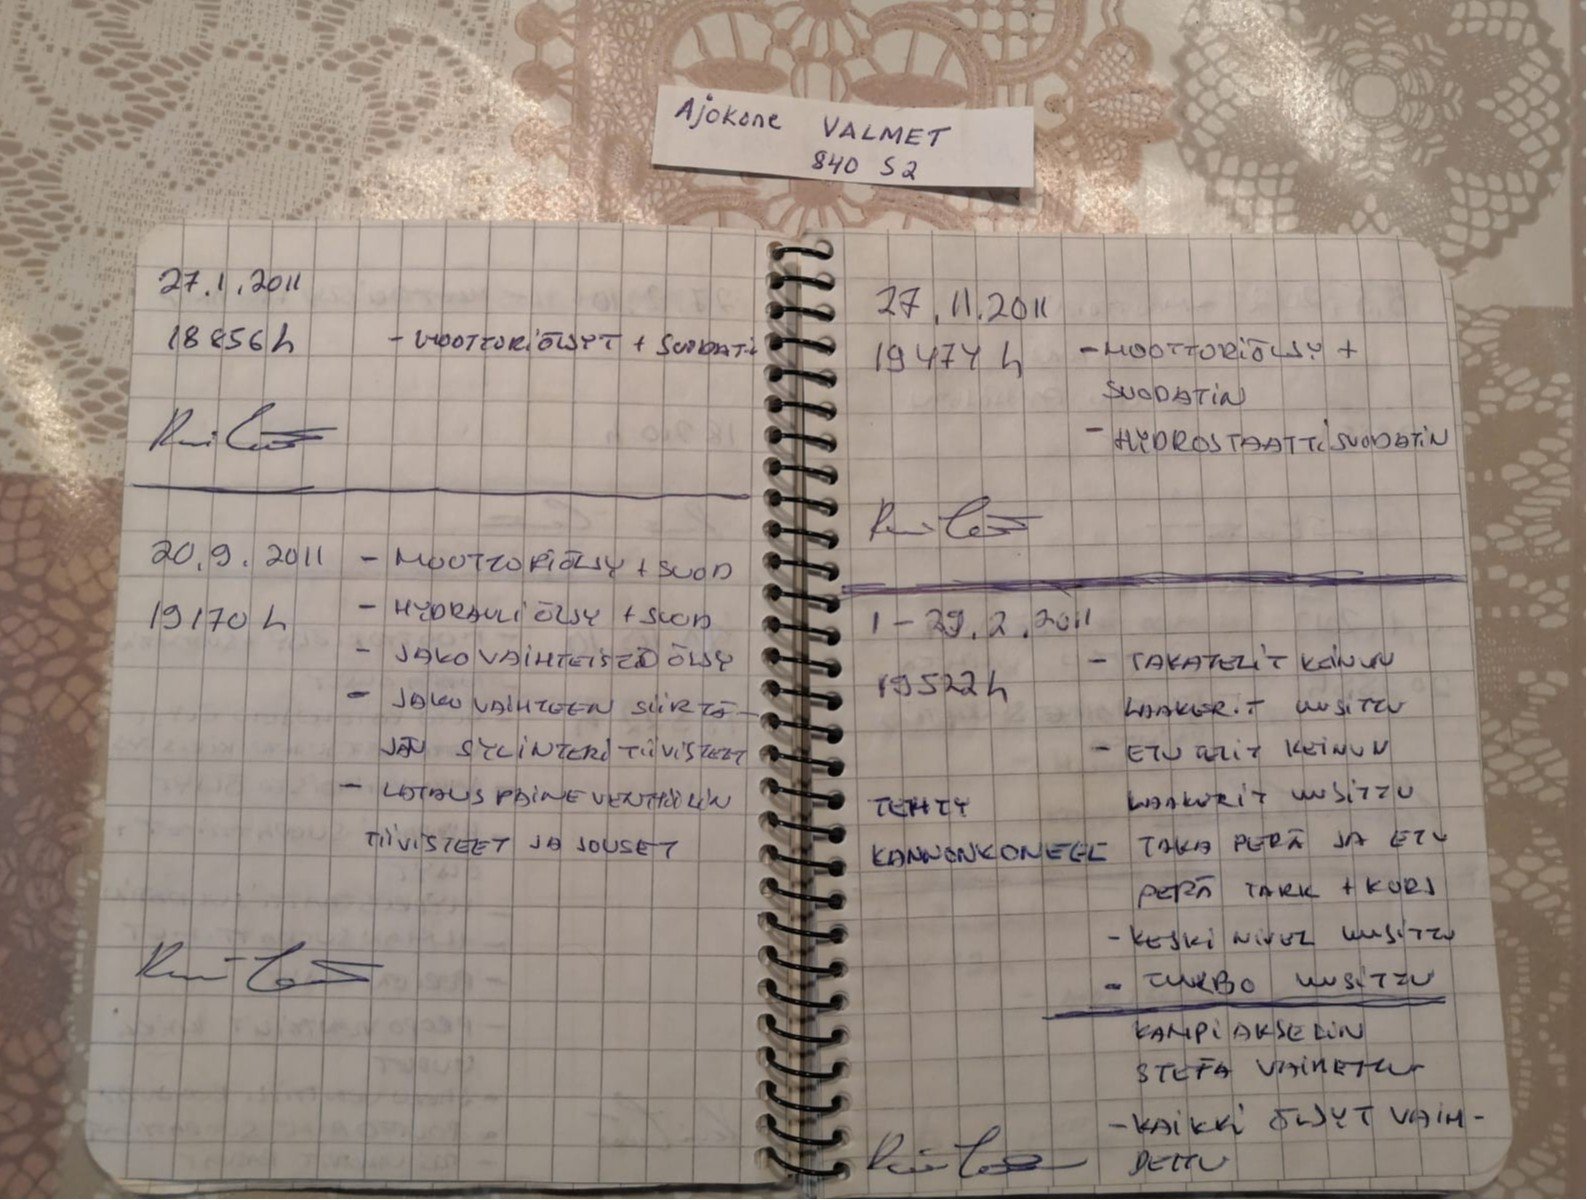 Ajokone VALMET
840 S2
27.1.2011
18856h - MOOTTORIÖLJYT + SUODATI
20.9.2011 - MOOTTORIÖLJY + SUOD
19170 h - HYDRAULI ÖLJY + SUOD
- JAKOVAIHTEISTO ÖLJY
- JAKOVAIHTEEN SIIRTÄ-
JÄN SYLINTERI TIIVISTEET
- LATAUSPAINEVENTTIILIN
TIIVISTEET JA JOUSET
27.11.2011
19474 h - MOOTTORIÖLJY +
SUODATIN
- HYDROSTAATTISUODATIN
1-29.2.2011
- TAKATELIT KEINUN
19522h
LAAKERIT UUSITTU
- ETU TELIT KEINUN
TEHTY LAAKERIT UUSITTU
TAKA PERÄ JA ETU
PERÄ TARK + KORJ
- KESKI NIVEL UUSITTU
- TURBO UUSITTU
KAMPIAKSELIN
STEFA VAIHETTU
- KAIKKI ÖLJYT VAIH-
DETTU